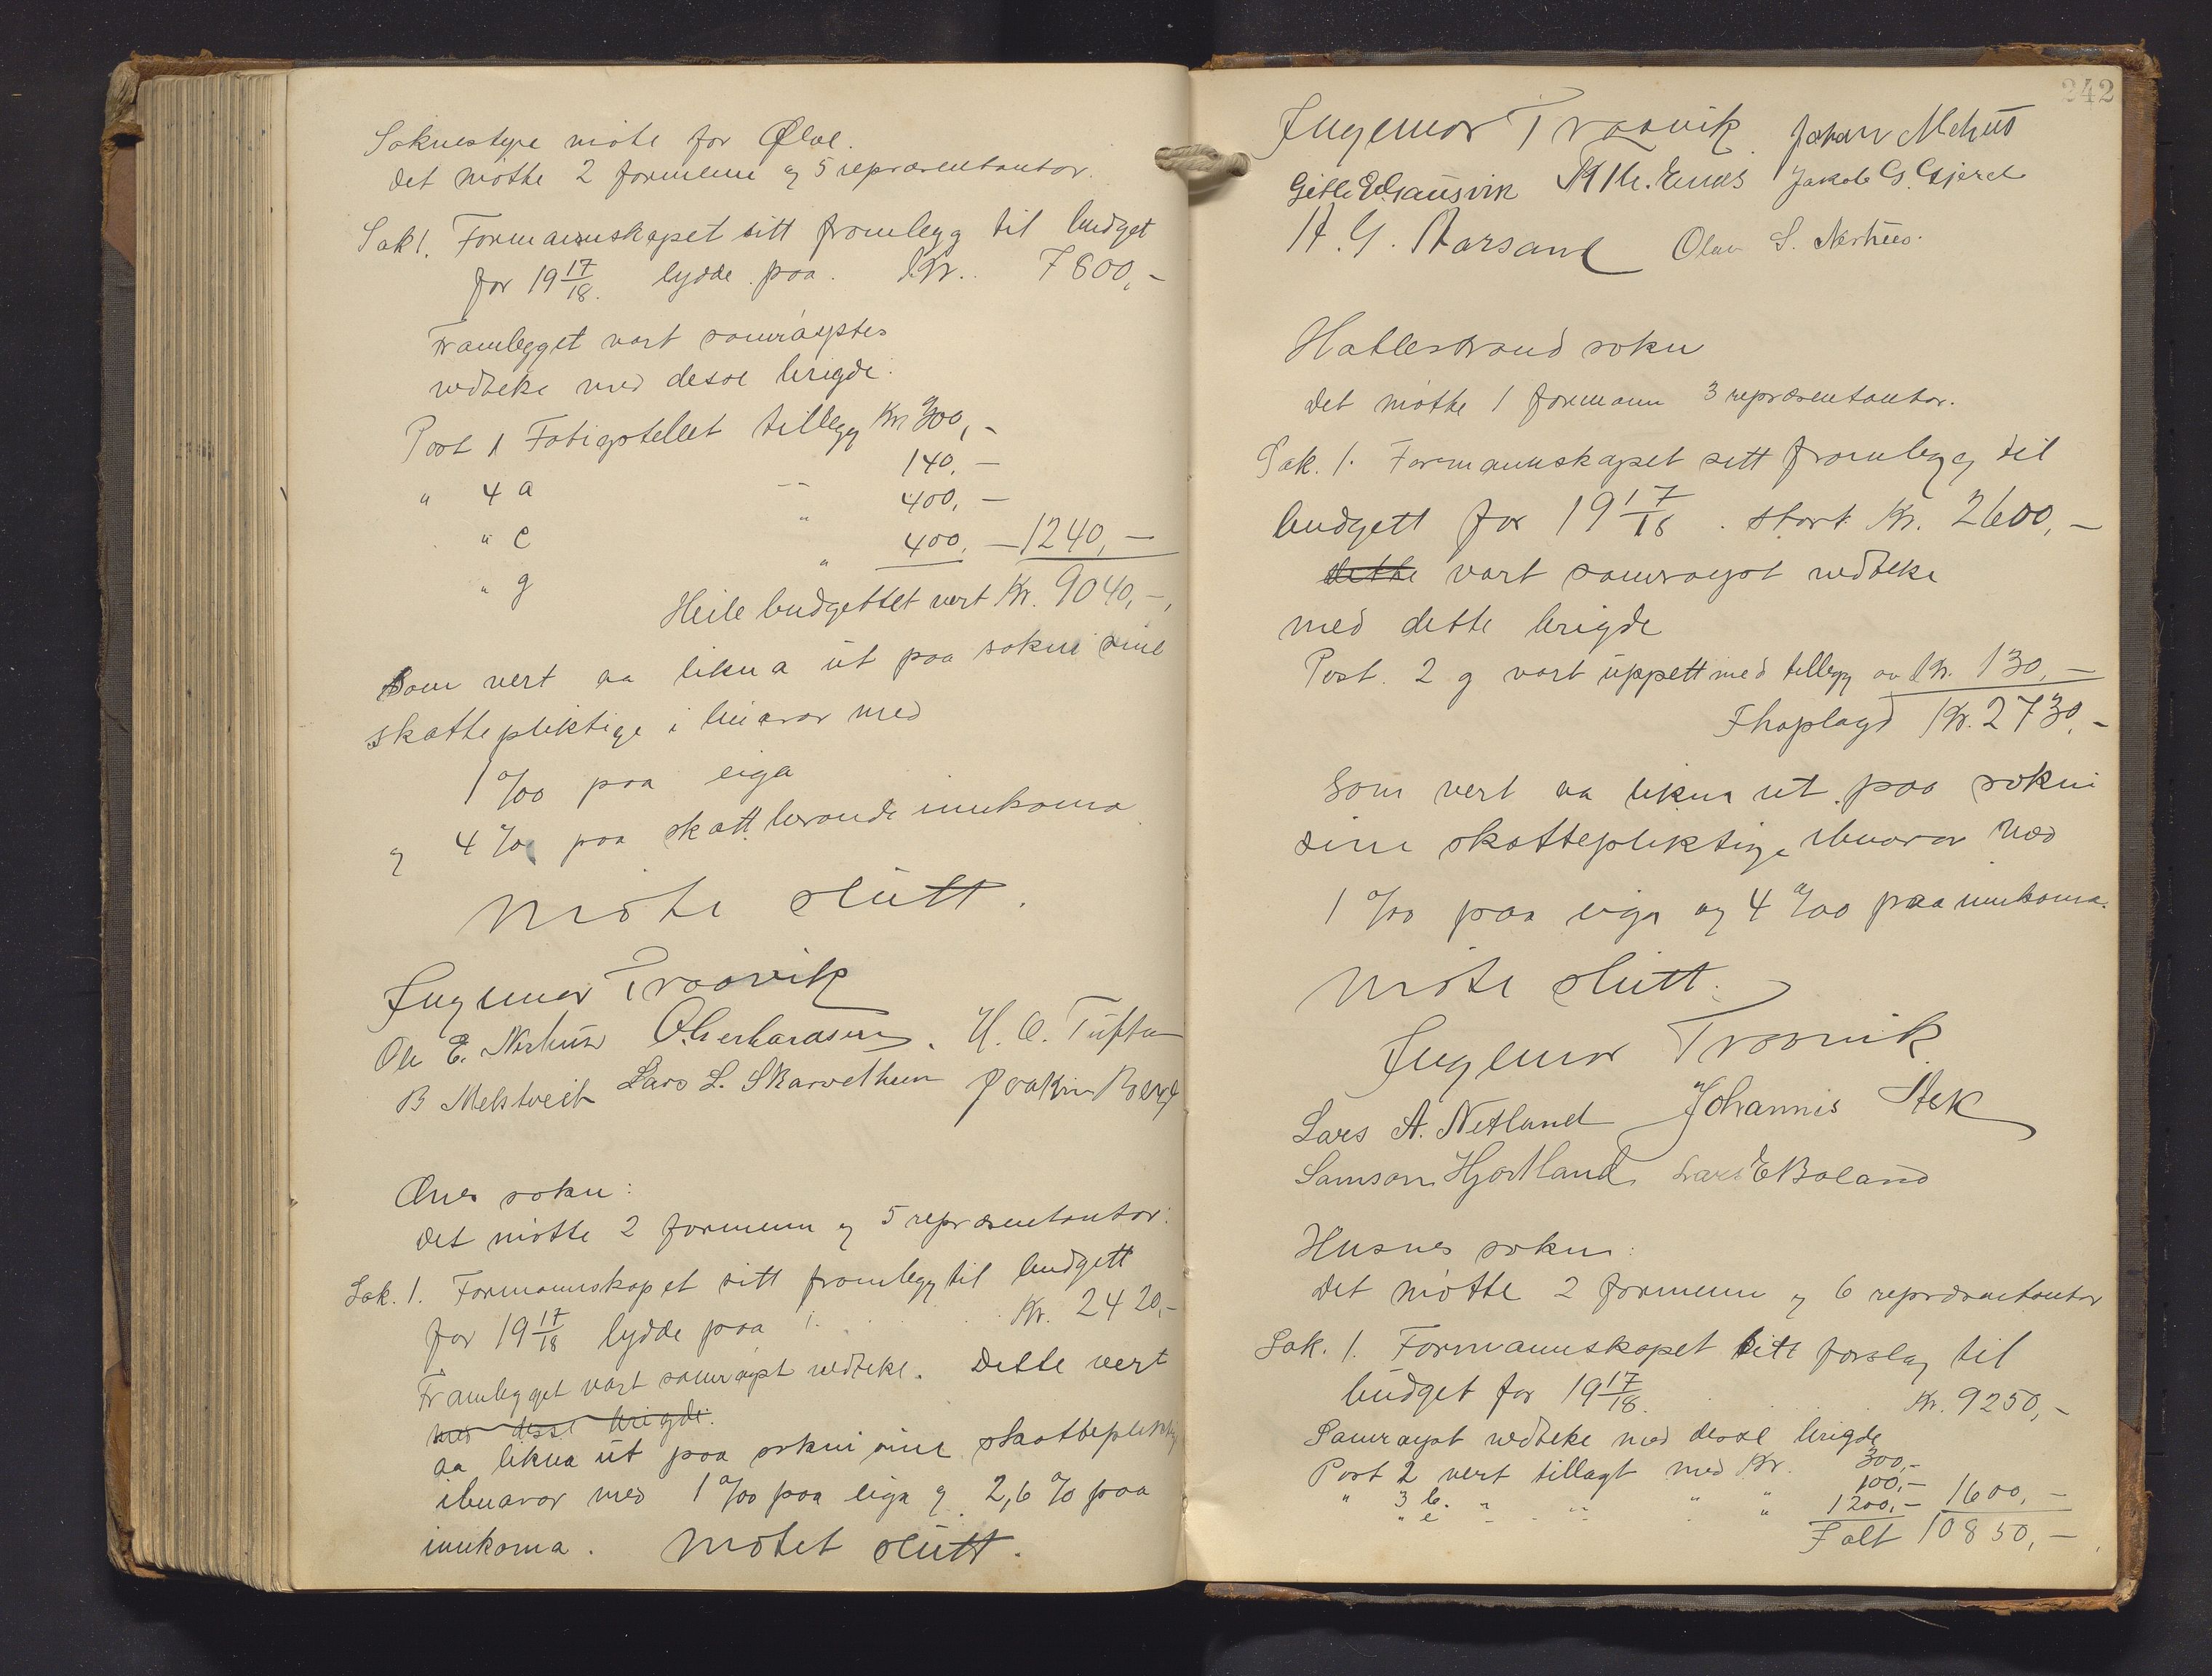 Soknestyre möte for Ølve.
Det mötte 2 formenn og 5 representantar.
Sak 1. Formannskapet sitt framlegg til budget
for 19 17/18. lydde paa. Kr. 7800,-
Framlegget vart samröystes
vedteke med desse brigde:
Post 1 Fatigstellet tillegg Kr 300,-
140,-
" 4 a -- 400,-
" e " 400,- 1240,-
" g "
Heile budgettet vert Kr. 9040,-,
Som vert aa likna ut paa sokni sine
skattepliktige i buarar med
1 0/00 paa eiga
og 4 % paa skattberande innkoma
Möte slutt.
Ingemar Traavik
Ole E. Nerhus O. Gerhardsen. H. O. Tufta
B Melstveit Lars L. Skarvethun Joakim Berg
Ænes sokn:
Det mötte 2 formenn og 5 representantar:
Sak. 1. Formannskapet sitt framlegg til budgett
for 19 17/18 lydde paa Kr. 2420,-
Framlegget vart samröyst vedteke. Dette vert
med desse brigde:
aa likna ut paa sokni sine skattepliktig
ibuarar med 1 0/00 paa eiga og 2,6 % paa
innkoma. Mötet slutt.
242
Ingemar Traavik. Johan Mehus
Gitle E. Gausvik Jakob G. Gjerde
H. G. Aarsand Olav S. Nerhus.
Hatlestrand sokn
Det mötte 1 formann 3 representantar.
Sak. 1. Formannskapet sitt framlegg til
budgett for 19 17/18. stort Kr. 2600,-
dette vart samröyst vedteke
med dette brigde
Post. 2 g vart uppsett med tillegg av Kr. 130,-
Ihoplagd Kr. 2730,-
Som vert aa likna ut paa sokni
sine skattepliktige ibuarar med
1 0/00 paa eiga og 4 0/00 paa innkoma.
Möte slutt.
Ingemar Traavik
Lars A. Netland Johannis Aek
Samson Hjortland Lars E Boland
Husnes sokn:
Det mötte 2 formenn og 6 representantar
Sak. 1. Formannskapet sitt forslag til
budget for 19 17/18. Kr. 9250,-
Samröyst vedteke med desse brigde
Post 2 vert tillagt med Kr. 300,-
" 3 b. " " " " 100,-
" e " " " 1200,- 1600,-
I alt 10850,-